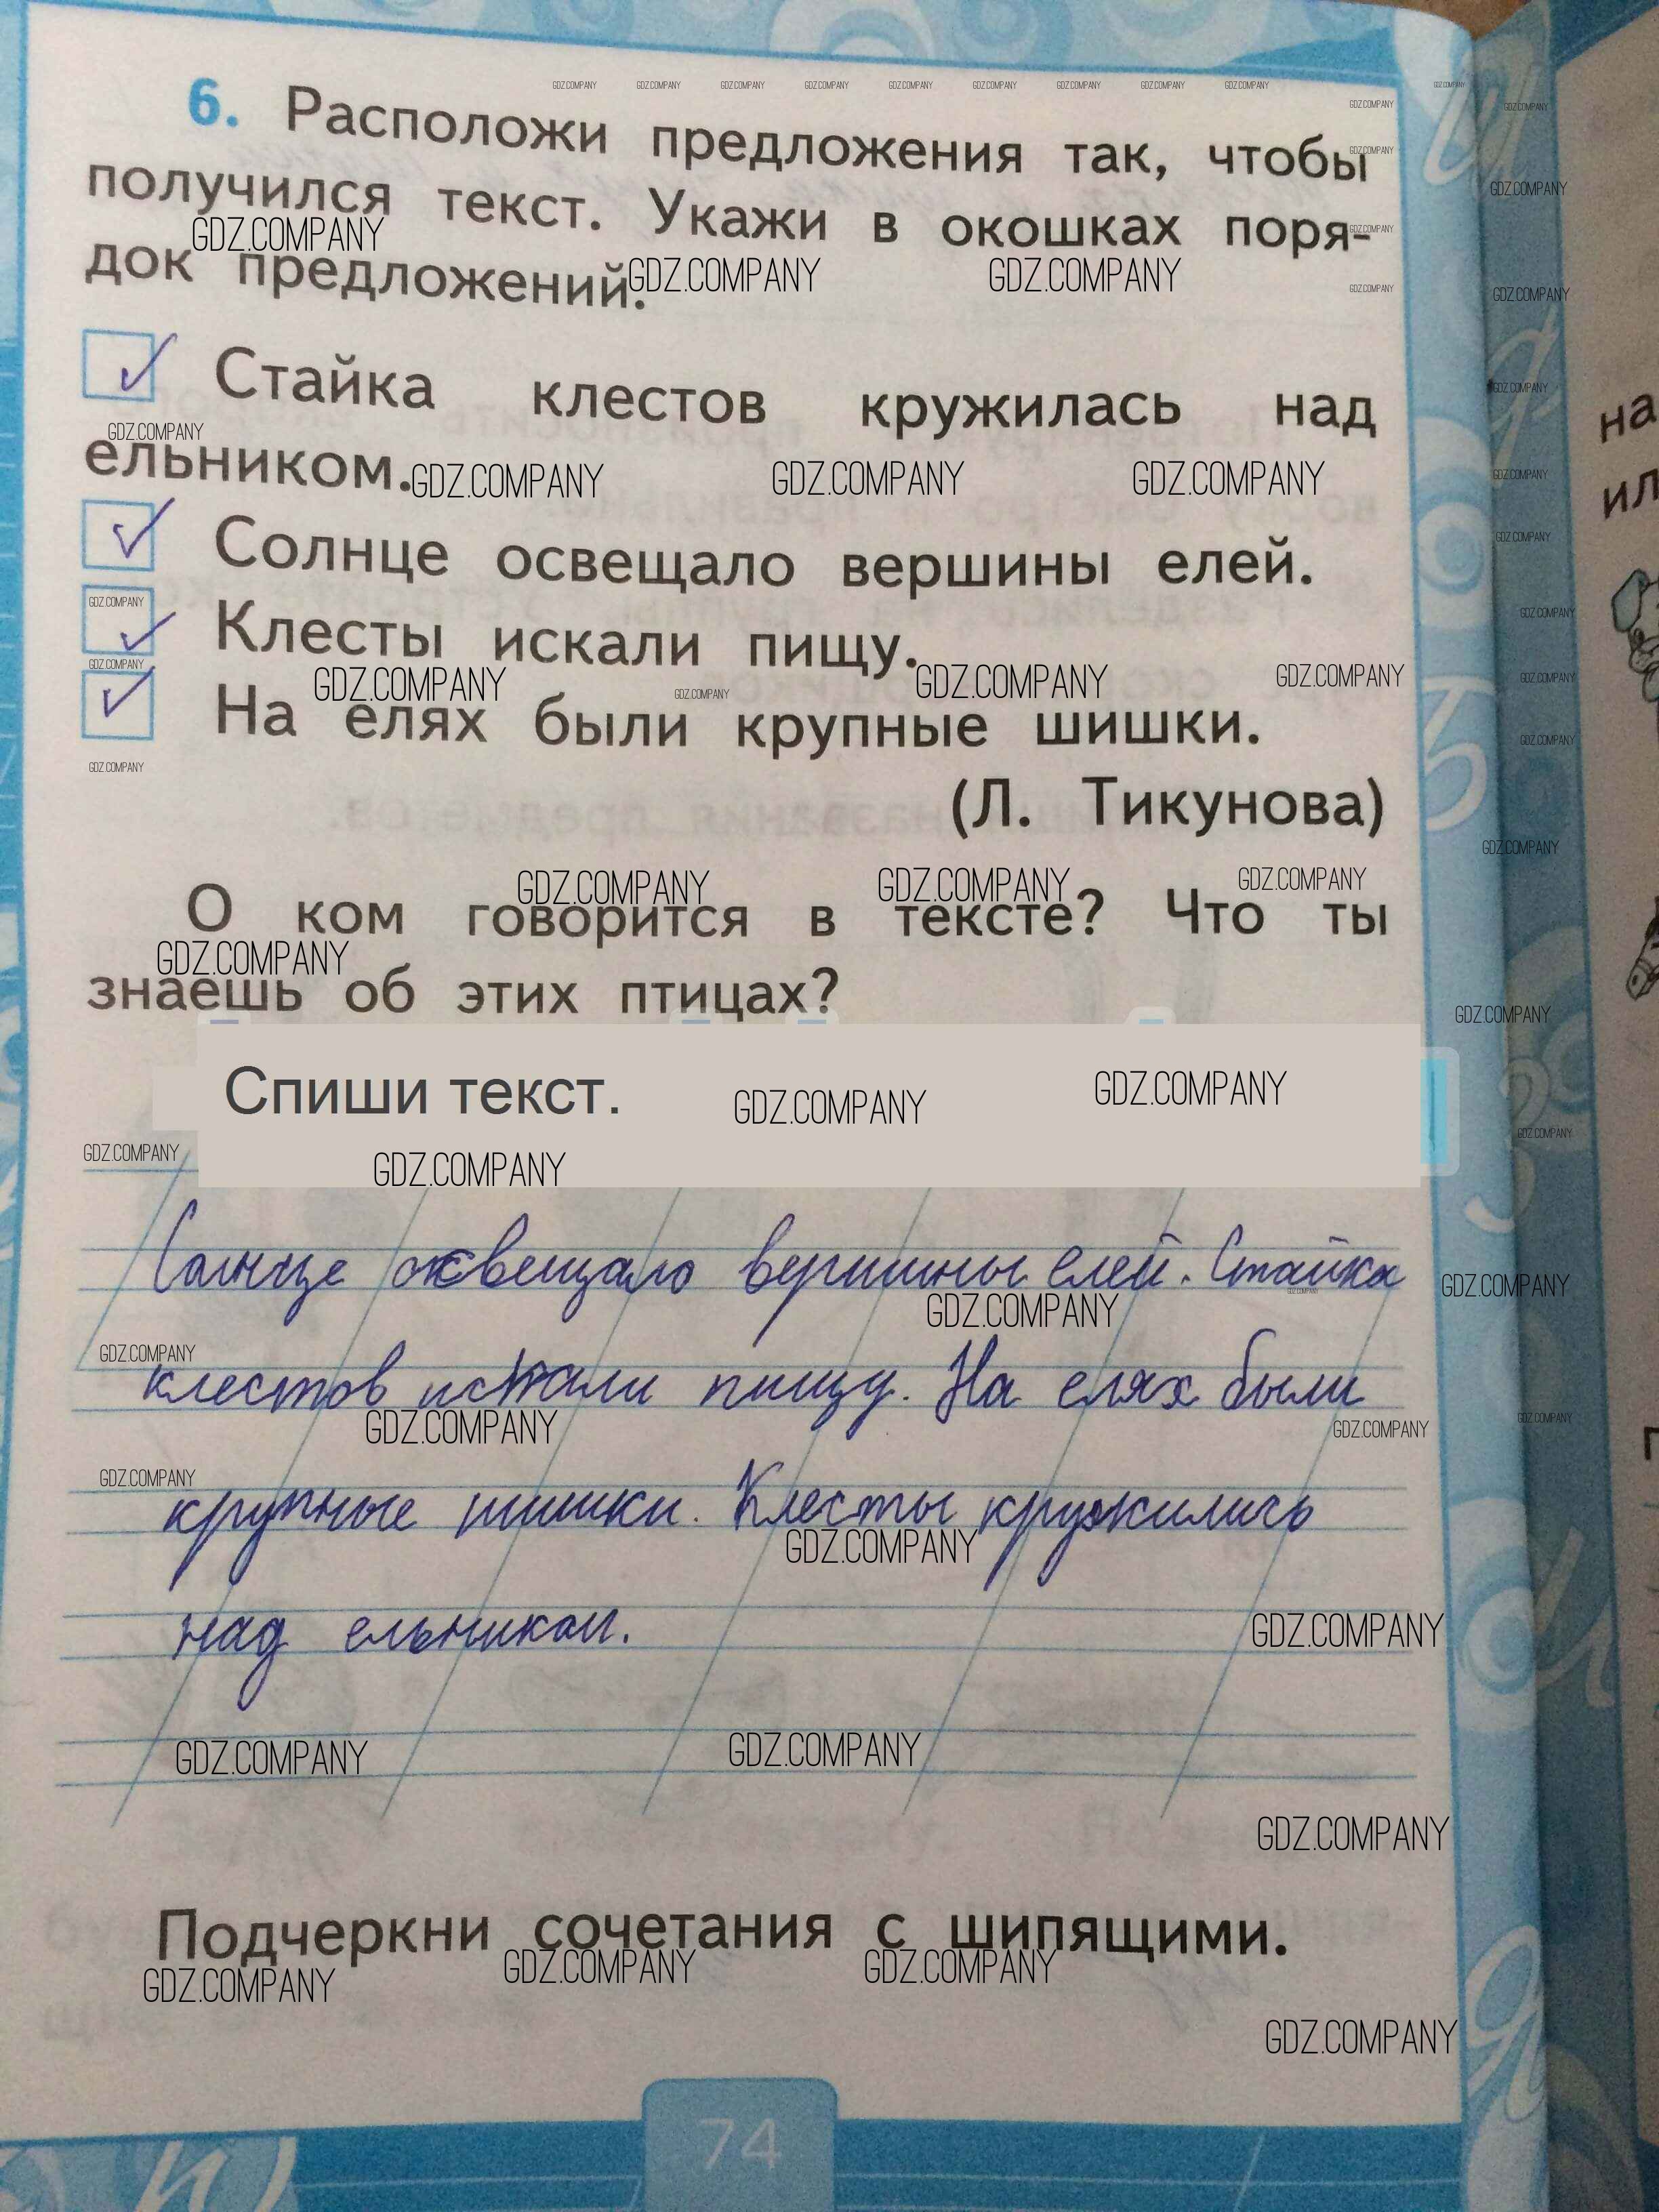 6. Расположи предложения так, чтобы
получился текст. Укажи в окошках поря-
док предложений.
Стайка клестов кружилась над
ельником.
Солнце освещало вершины елей.
Клесты искали пищу.
На елях были крупные шишки.
(Л. Тикунова)
О ком говорится в тексте? Что ты
знаешь об этих птицах?
Спиши текст.
Солнце освещало вершины елей. Стайка
клестов искали пищу. На елях были
крупные шишки. Клесты кружились
над ельником.
Подчеркни сочетания с шипящими.
74
на
ил
GDZ.COMPANY